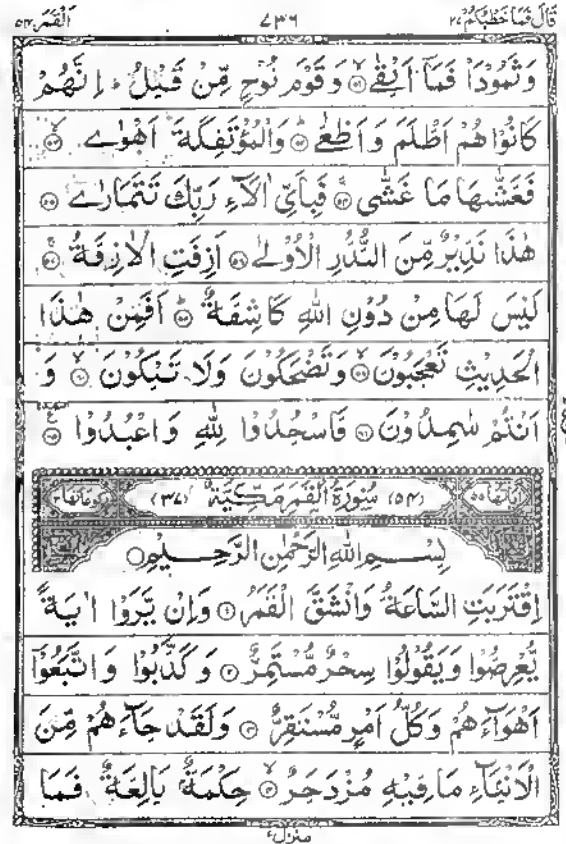 قَالَ فَمَا خَطْبُكُمْ ۲۷ ۷۳۶ اَلْقَمَر ۵۴
وَثَمُوْدَا۟ فَمَاۤ اَبْقٰى ۙ﴿۵۱﴾ وَقَوْمَ نُوْحٍ مِّنْ قَبْلُ ؕ اِنَّهُمْ
كَانُوْا هُمْ اَظْلَمَ وَاَطْغٰى ؕ﴿۵۲﴾ وَالْمُؤْتَفِكَةَ اَهْوٰى ۙ﴿۵۳﴾
فَغَشّٰىهَا مَا غَشّٰى ۚ﴿۵۴﴾ فَبِاَىِّ اٰلَآءِ رَبِّكَ تَتَمَارٰى ﴿۵۵﴾
هٰذَا نَذِيْرٌ مِّنَ النُّذُرِ الْاُوْلٰى ﴿۵۶﴾ اَزِفَتِ الْاٰزِفَةُ ۚ﴿۵۷﴾
لَيْسَ لَهَا مِنْ دُوْنِ اللّٰهِ كَاشِفَةٌ ؕ﴿۵۸﴾ اَفَمِنْ هٰذَا
الْحَدِيْثِ تَعْجَبُوْنَ ۙ﴿۵۹﴾ وَتَضْحَكُوْنَ وَلَا تَبْكُوْنَ ۙ﴿۶۰﴾ وَ
اَنْتُمْ سٰمِدُوْنَ ﴿۶۱﴾ فَاسْجُدُوْا لِلّٰهِ وَاعْبُدُوْا ﴿۶۲﴾
اٰيَاتُهَا ۵۵ (۵۴) سُوْرَةُ الْقَمَرِ مَكِّيَّةٌ (۳۷) رُكُوْعَاتُهَا ۳
بِسْمِ اللّٰهِ الرَّحْمٰنِ الرَّحِيْمِ
اِقْتَرَبَتِ السَّاعَةُ وَانْشَقَّ الْقَمَرُ ﴿۱﴾ وَاِنْ يَّرَوْا اٰيَةً
يُّعْرِضُوْا وَيَقُوْلُوْا سِحْرٌ مُّسْتَمِرٌّ ﴿۲﴾ وَكَذَّبُوْا وَاتَّبَعُوْۤا
اَهْوَآءَهُمْ وَكُلُّ اَمْرٍ مُّسْتَقِرٌّ ﴿۳﴾ وَلَقَدْ جَآءَهُمْ مِّنَ
الْاَنْۢبَآءِ مَا فِيْهِ مُزْدَجَرٌ ۙ﴿۴﴾ حِكْمَةٌۢ بَالِغَةٌ فَمَا
منزل